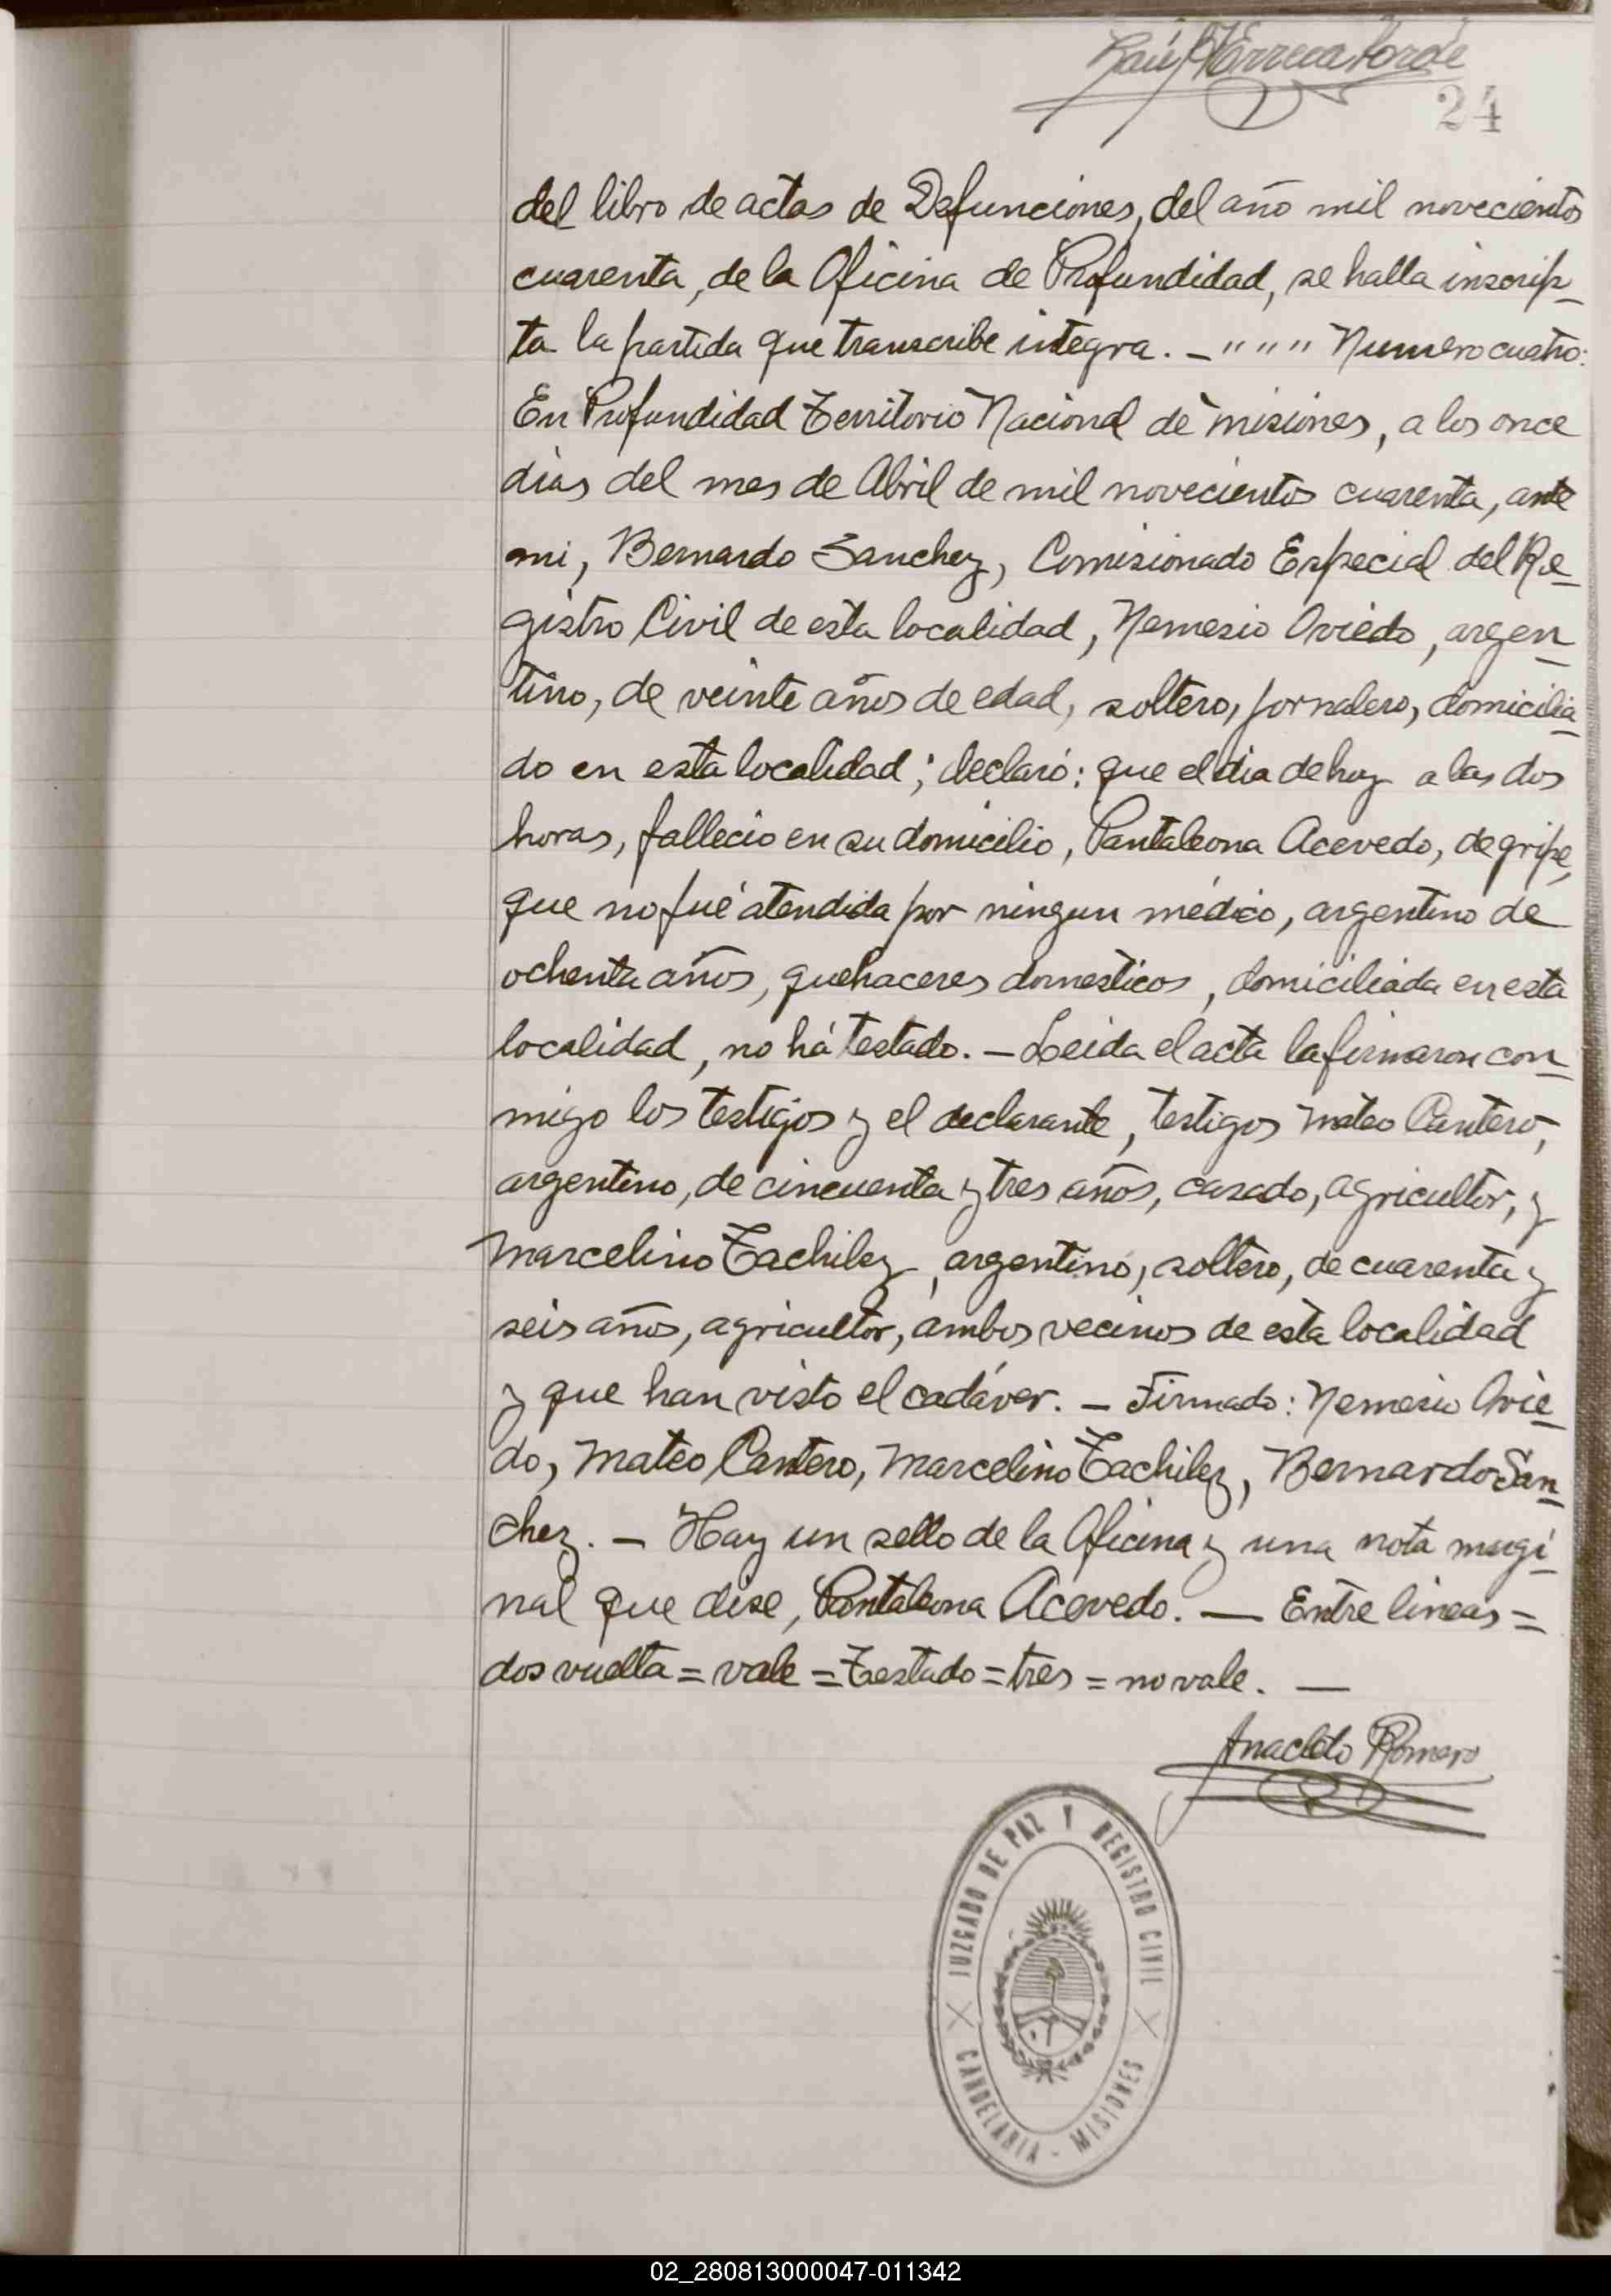 Raúl
24
del libro de actas de Defunciones, del año mil novecientos
cuarenta, de la Oficina de Profundidad, se halla inscrip-
ta la partida que transcribe integra. — " " " " Numero cuatro:
En Profundidad Territorio Nacional de misiones, a los once
dias del mes de Abril de mil novecientos cuarenta, ante
mi, Bernardo Sanchez, Comisionado Especial del Re-
gistro Civil de esta localidad, Nemesio Oviedo, argen-
tino, de veinte años de edad, soltero, jornalero, domicilia-
do en esta localidad; declaró: que el dia de hoy a las dos
horas, fallecio en su domicilio, Pantaleona Acevedo, de gripe,
que no fué atendida por ningun médico, argentino de
ochenta años, quehaceres domesticos, domiciliada en esta
localidad, no há testado. — Leida el acta la firmaron con-
migo los testigos y el declarante, testigos Mateo Cantero,
argentino, de cincuenta y tres años, casado, agricultor, y
Marcelino Tachilez, argentino, soltero, de cuarenta y
seis años, agricultor, ambos vecinos de esta localidad
y que han visto el cadáver. — Firmado: Nemesio Ovie-
do, Mateo Cantero, Marcelino Tachilez, Bernardo San-
chez. — Hay un sello de la Oficina y una nota margi-
nal que dise, Pantaleona Acevedo. — Entre lineas =
dos vuelta = vale = Testado = tres = no vale. —
Anacleto Romero
JUZGADO DE PAZ Y REGISTRO CIVIL
CANDELARIA - MISIONES
02_280813000047-011342